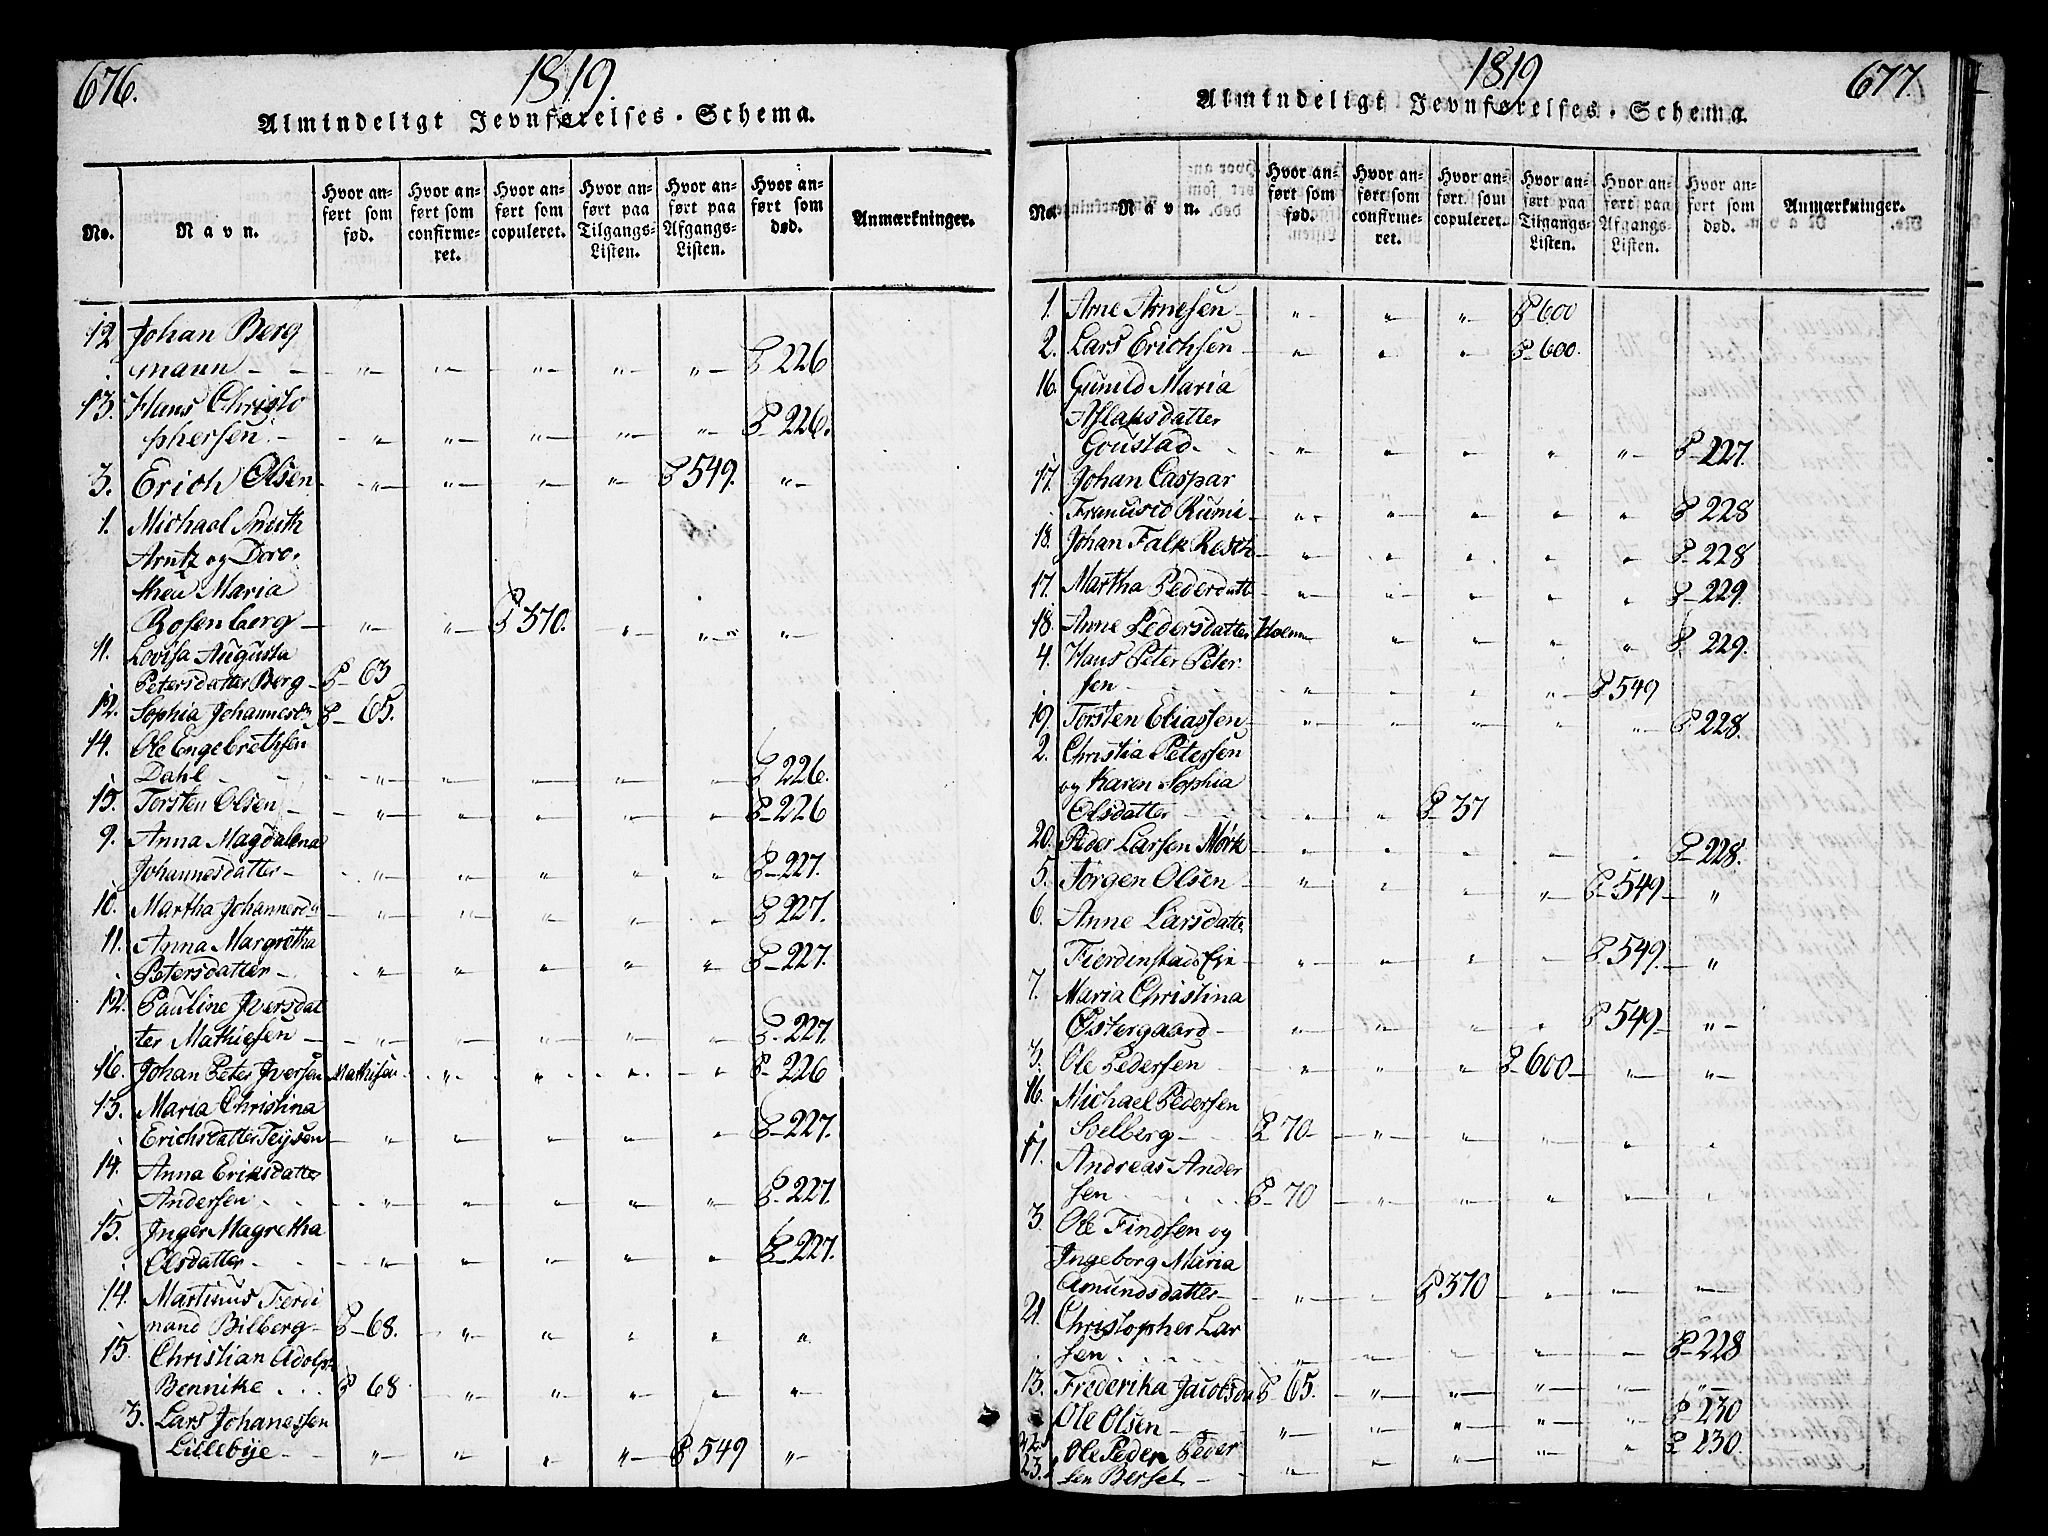 676.
1819.
Almindeligt Jevnførelses-Schema.
No.
Navn.
Hvor anført som fød.
Hvor anført som confirmeret.
Hvor anført som copuleret.
Hvor anført paa Tilgangs-Listen.
Hvor anført paa Afgangs-Listen.
Hvor anført som død.
Anmærkninger.
12 Johan Berg
mann P 226
13. Hans Christo
phersen P 226.
3. Erich Olsen P 549.
1. Michael Smith
Arntz og Doro.
thea Maria
Rosenberg P 370.
11. Lovisa Augusta
Petersdatter Berg P 63
12. Sophia Johannesd P 65.
14. Ole Engebrethsen
Dahl P 226.
15. Torsten Olsen P 226
9. Anna Magdalena
Johannesdatter P 227.
10. Martha Johannesd P 227.
11. Anna Margretha
Petersdatter P 227.
12. Pauline Iversdat
ter Mathiesen P. 227.
16. Johan Peter Iversen Mathisen P 226
13. Maria Christina
Erichsdatter Teysen P 227.
14. Anna Eriksdatter
Andersen P 227.
15. Inger Magretha
Olsdatter P 227.
14. Martinus Ferdi
nand Bilberg P 68.
15. Christian Adolph
Bennike P 68
3. Lars Johanessen
Lillebye P 549
1819
677.
Almindeligt Jevnførelses-Schema.
No.
Navn.
Hvor anført som fød.
Hvor anført som confirmeret.
Hvor anført som copuleret.
Hvor anført paa Tilgangs-Listen.
Hvor anført paa Afgangs-Listen.
Hvor anført som død.
Anmærkninger.
1. Arne Arnesen P 600
2. Lars Erichsen P 600.
16. Gunild Maria
Aslaksdatter
Goustad P 227.
17. Johan Caspar
P 228
18. Johan Falk P 228
17. Martha Pedersdatt P 229.
18. Anne Pedersdatter Holem P. 229.
4. Hans Peter Peter
sen P 549
19. Torsten Eliassen P. 228.
2. Christia Petersen
og Karen Sophia
Olsdatter P 37
20. Peder Larsen Mørk P 228.
5. Jørgen Olsen P 549
6. Anne Larsdatte
Fierdinstad P 549.
7. Maria Christina
Østergaard P 549
3. Ole Pedersen P 600
16. Michael Pedersen
Svelberg P 70
17. Andreas Ander
sen P 70
3. Ole Findsen og
Ingeborg Maria
Amundsdatter P 370
21. Christopher Lar
sen P 228
13. Frederika Jacobsda P 65.
22. Ole Olsen P 230
23. Ole Peder Peder P 230.
sen Berset